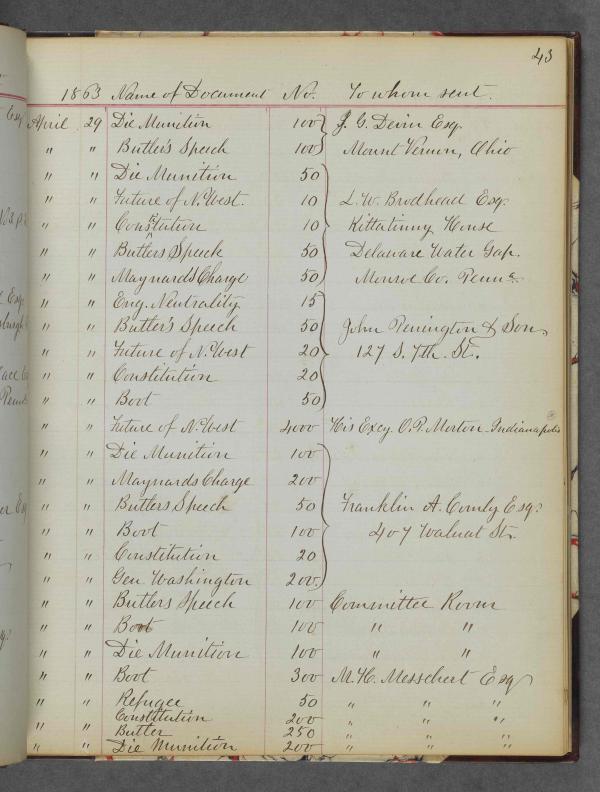 43
1863 Name of Document No. To whom sent.
April 29 Die Munition 100 J. G. Devin Esq.
" " Butler's Speech 100 Mount Vernon, Ohio
" " Die Munition 50
" " Future of N. West. 10 L. W. Brodhead Esq.
" " Constitution 10 Kittatinny House
" " Butlers Speech 50 Delaware Water Gap.
" " Maynards Charge 50 Monroe Co. Penna.
" " Eng. Neutrality 15
" " Butler's Speech 50 John Penington & Son,
" " Future of N. West 20 127 S. 7th. St.
" " Constitution 20
" " Boot 50
" " Future of N. West 4000 His Excy. O. P. Morton - Indianapolis
" " Die Munition 100
" " Maynards Charge 200
" " Butlers Speech 50 Franklin A. Comly Esq.
" " Boot 100 407 Walnut St.
" " Constitution 20
" " Gen Washington 200
" " Butlers Speech 100 Committee Room
" " Boot 100 " "
" " Die Munition 100 " "
" " Boot 300 M. H. Messchert Esq
" " Refugee 50 " " "
" " Constitution 200 " " "
" " Butler 250 " " "
" " Die Munition 200 " " "